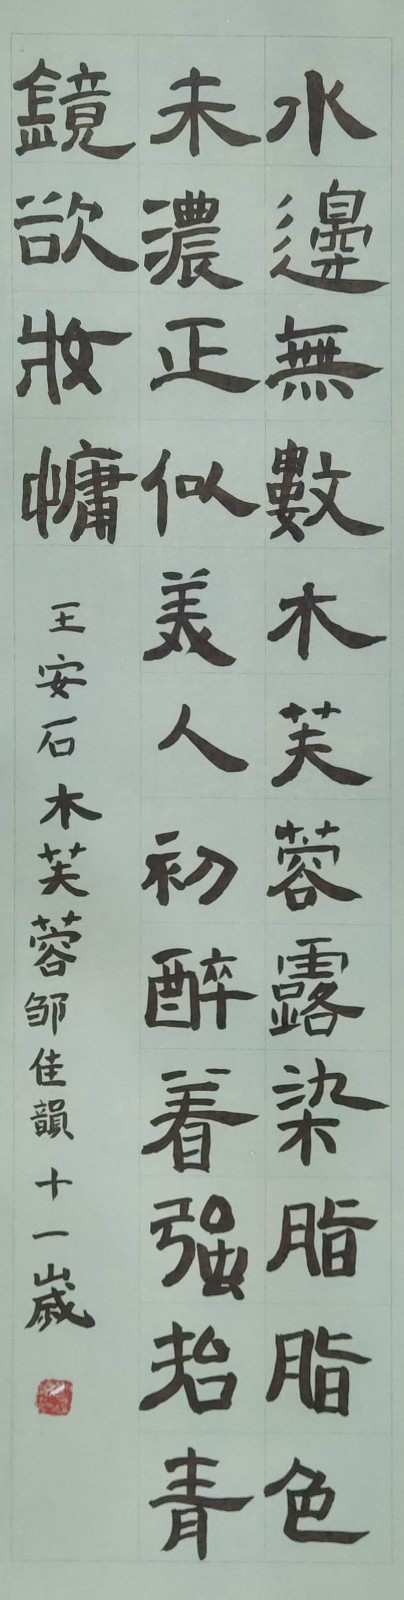 水邊無數木芙蓉露染脂脂色
未濃正似美人初醉着強抬青
鏡欲妝慵
王安石木芙蓉邹佳韻十一歲